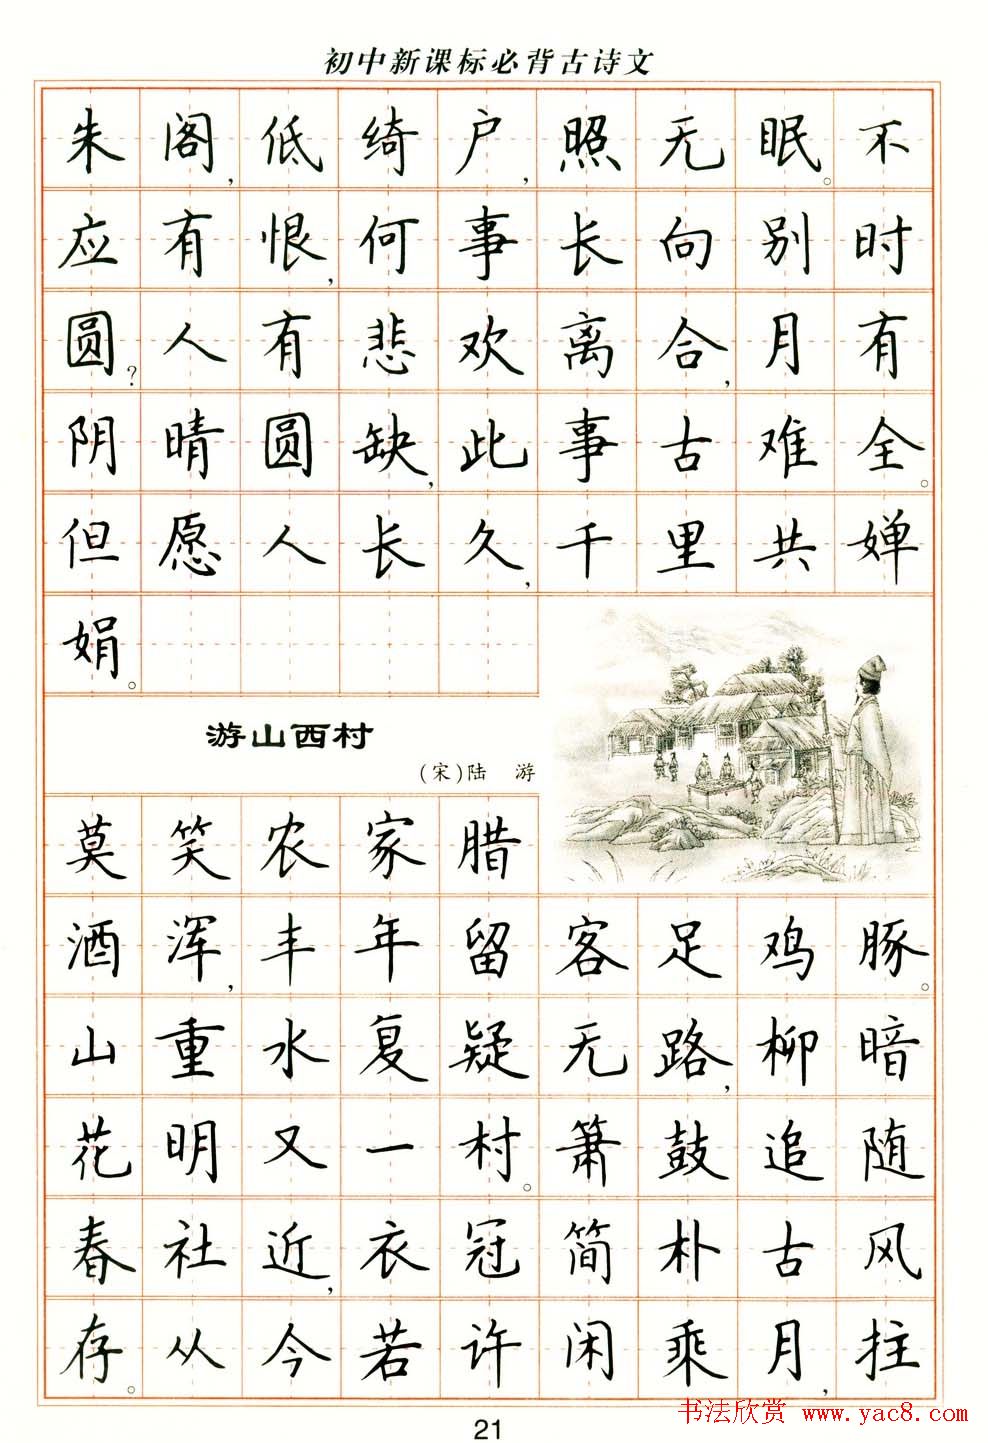 初中新课标必背古诗文
朱阁,低绮户,照无眠。不
应有恨,何事长向别时
圆?人有悲欢离合,月有
阴晴圆缺,此事古难全。
但愿人长久,千里共婵
娟。
游山西村
(宋)陆 游
莫笑农家腊
酒浑,丰年留客足鸡豚。
山重水复疑无路,柳暗
花明又一村。箫鼓追随
春社近,衣冠简朴古风
存。从今若许闲乘月,拄
21
书法欣赏 www.yac8.com